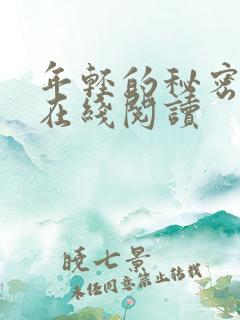 年轻的秘密
在线阅读
晓七景
未经同意禁止转载